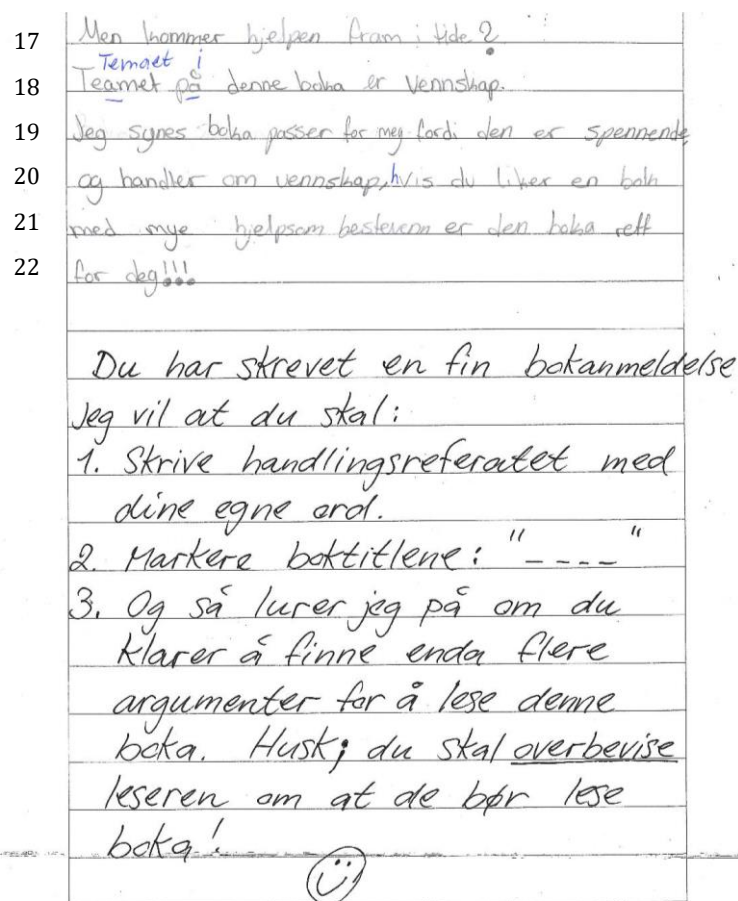 17 Men kommer hjelpen fram i tide?
Temaet i
18 Teamet på denne boka er vennskap.
19 Jeg synes boka passer for meg fordi den er spennende,
20 og handler om vennskap, hvis du liker en bok
21 med mye hjelpsom bestevenn er den boka rett
22 for deg!!!
Du har skrevet en fin bokanmeldelse
Jeg vil at du skal:
1. Skrive handlingsreferatet med
dine egne ord.
2. Markere boktitlene: "----"
3. Og så lurer jeg på om du
klarer å finne enda flere
argumenter for å lese denne
boka. Husk; du skal overbevise
leseren om at de bør lese
boka!